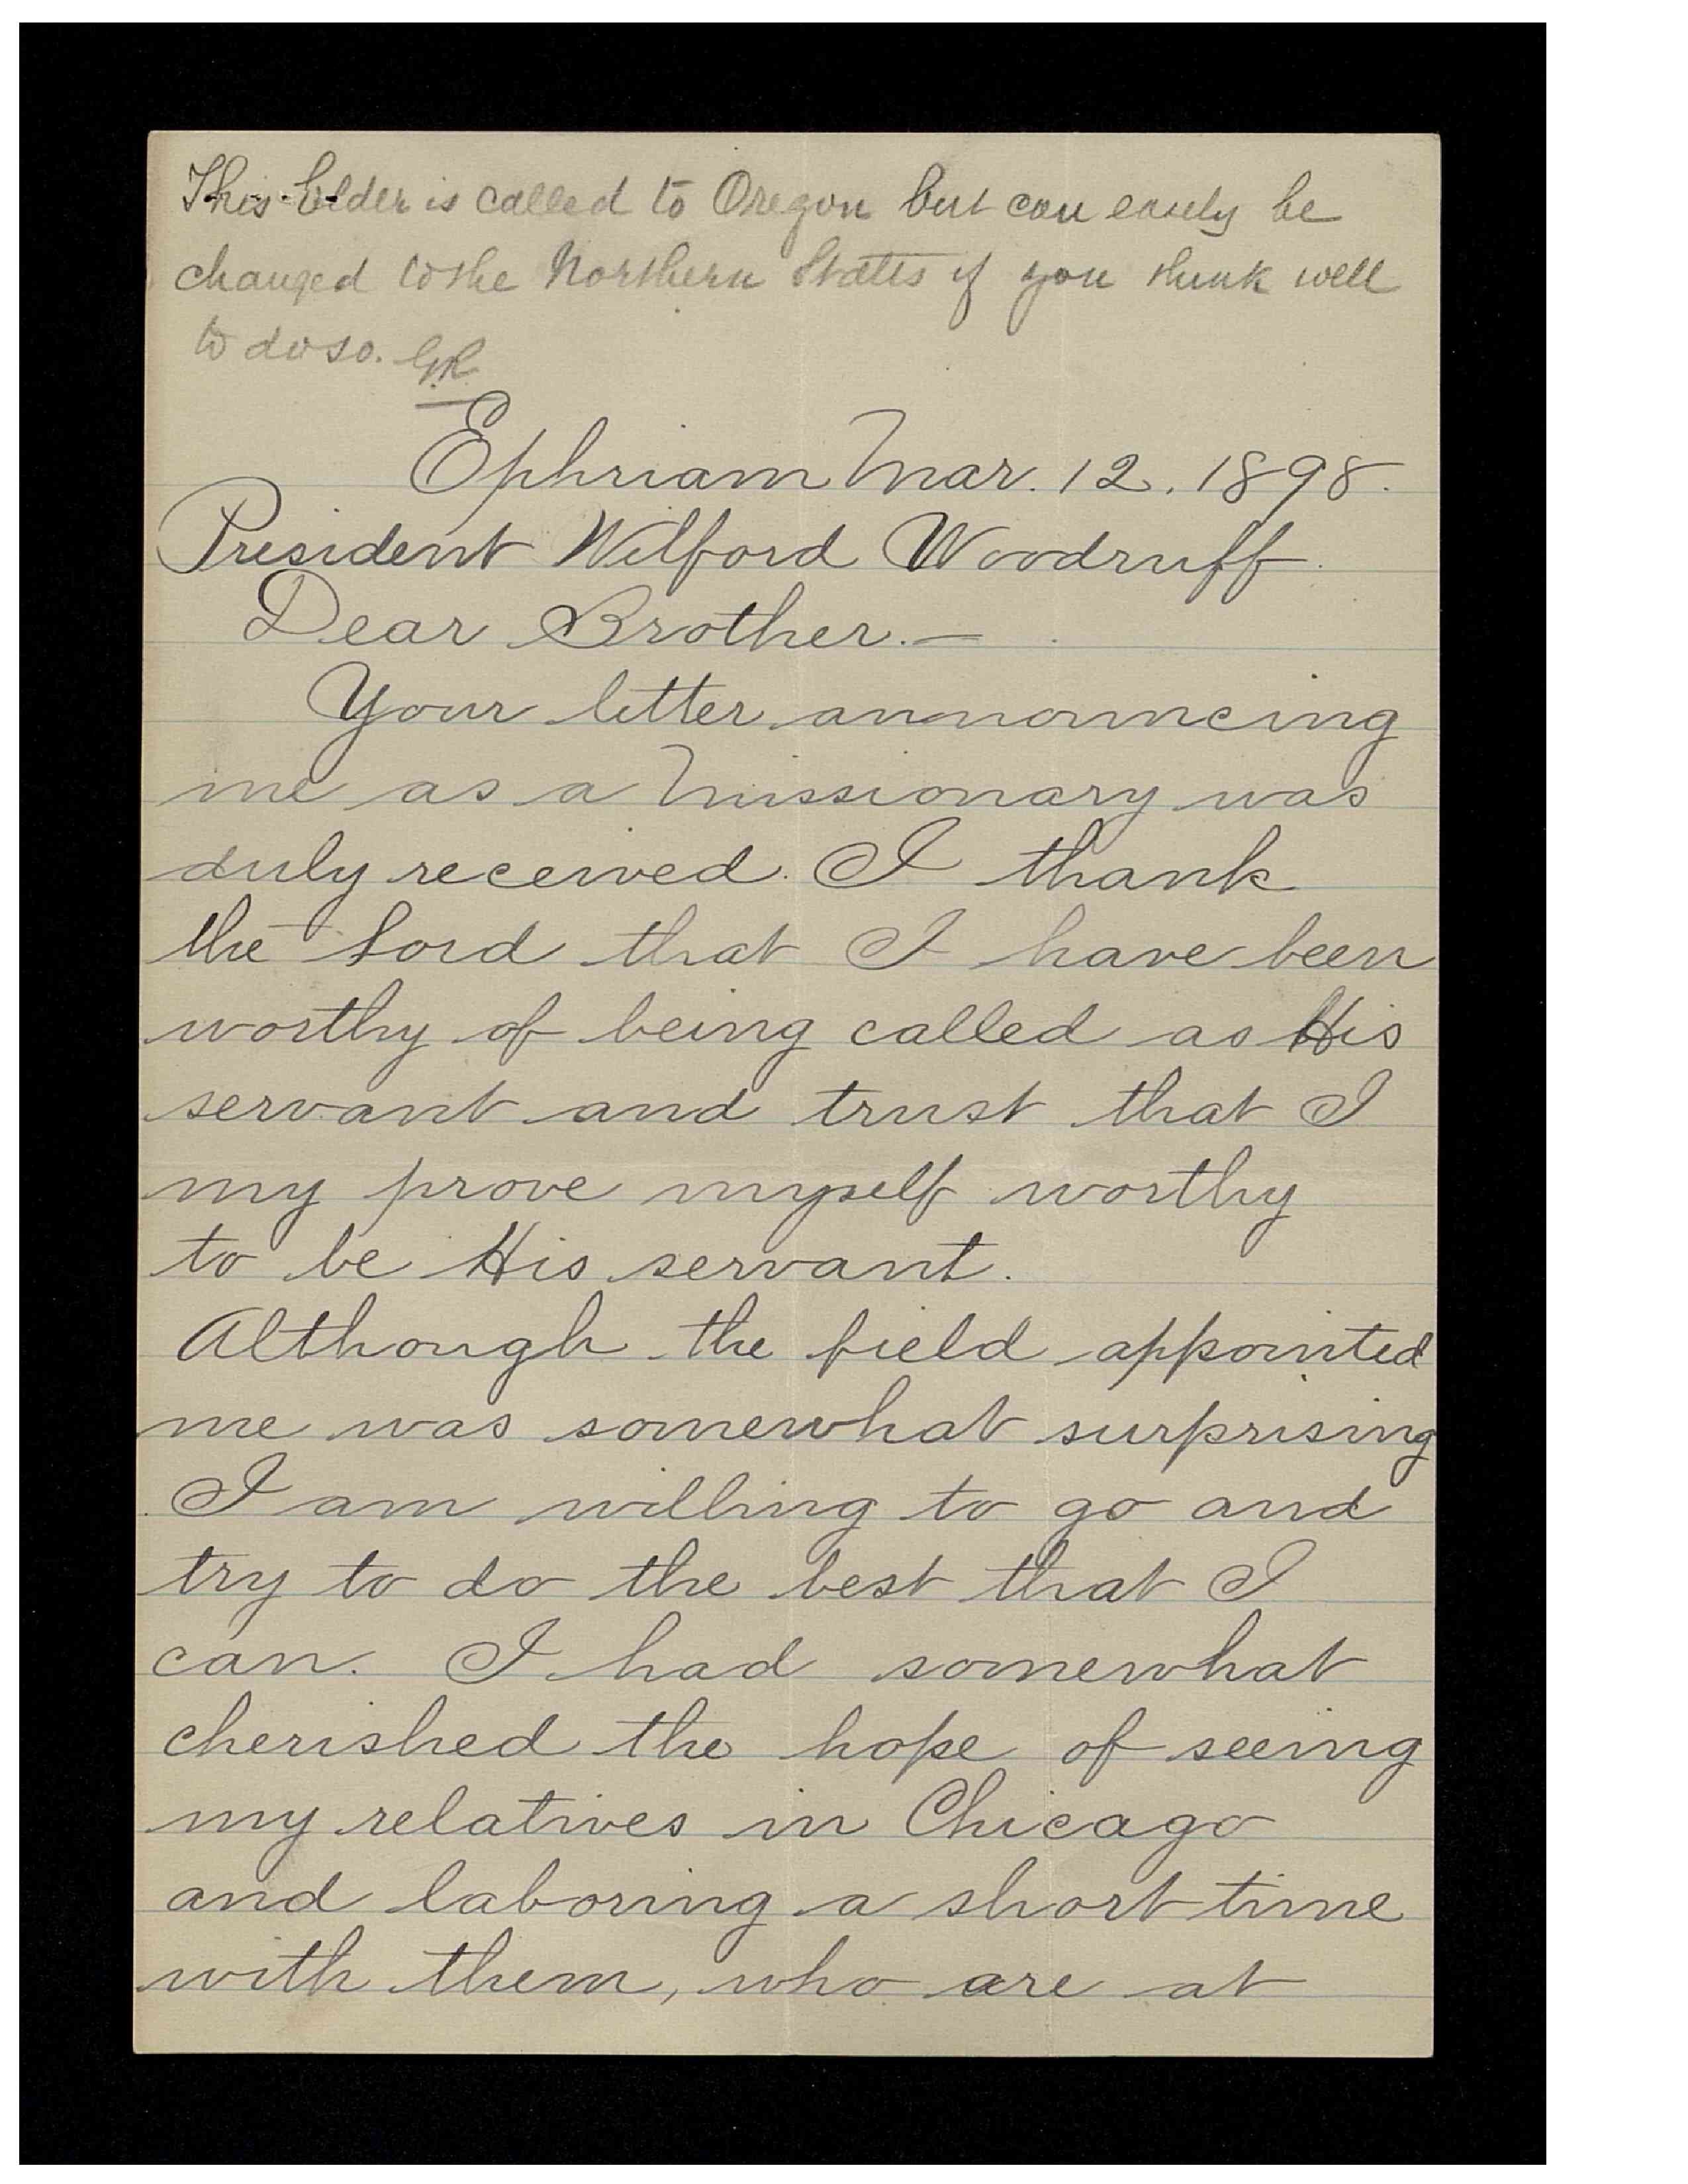 This Elder is called to Oregon but can easily be
changed to the Northern States if you think well
to do so. GR
Ephriam Mar. 12. 1898.
President Wilford Woodruff.
Dear Brother.—
Your letter announcing
me as a Missionary was
duly received. I thank
the Lord that I have been
worthy of being called as His
servant and trust that I
my prove myself worthy
to be His servant.
Although the field appointed
me was somewhat surprising
I am willing to go and
try to do the best that I
can. I had somewhat
cherished the hope of seeing
my relatives in Chicago
and laboring a short time
with them, who are at